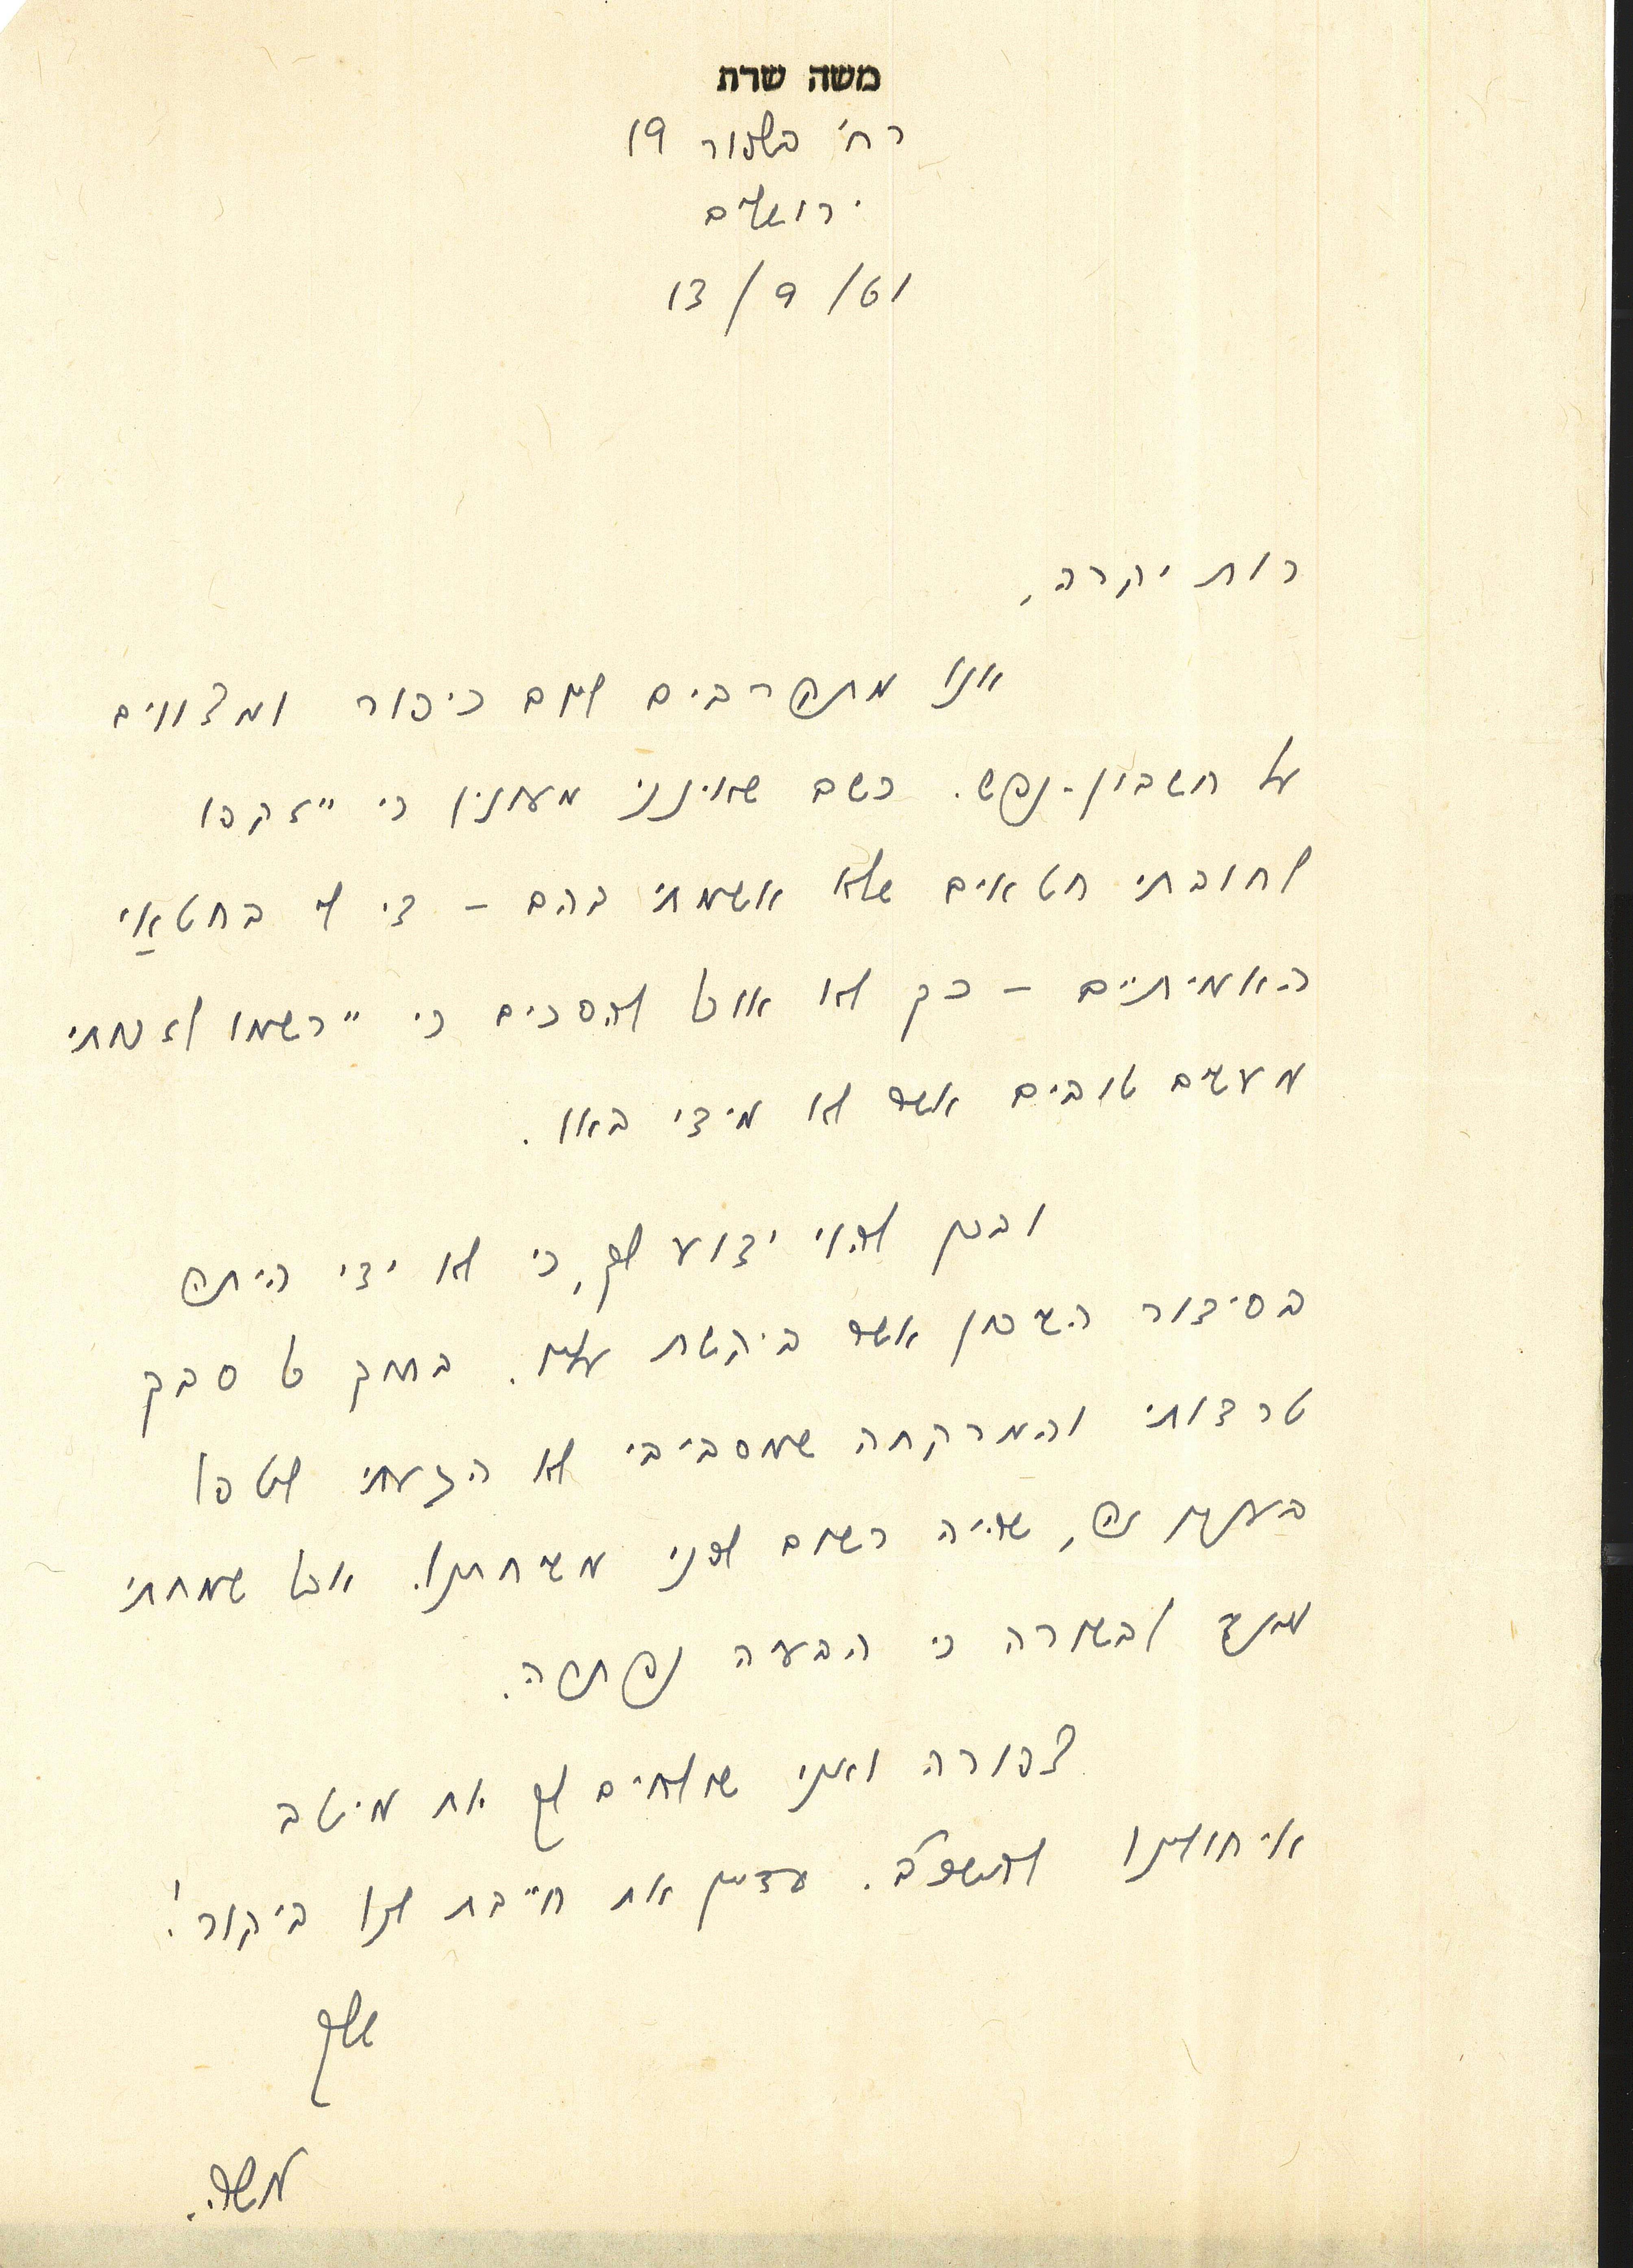 משה שרת
רח' בלפור 19
ירושלים
13/9/61
רות יקרה,
אנו מתקרבים ליום כיפור ומצווים
על חשבון-נפש. כשם שאינני מעונין כי ייזקפו
לחובתי חטאים שלא אשמתי בהם – די לי בחטאַי
האמיתיים – כך לא אוכל להסכים כי יירשמו לזכותי
מעשים טובים אשר לא מידי באו.
ובכן להוי ידוע לך, כי לא ידי היתה
בסידור השיכון אשר ביקשת עליו. בתוך כל סבך
טרדותי והמרקחה שמסביבי לא הגעתי לטפל
בעניין זה, שהיה רשום לפני משיחתנו. אבל שמחתי
לבשורה כי הבעיה נפתרה.
צפורה ואני שולחים לך את מיטב
איחולינו לתשכ"ב. עדיין את חייבת לנו ביקור!
שלך
משה.